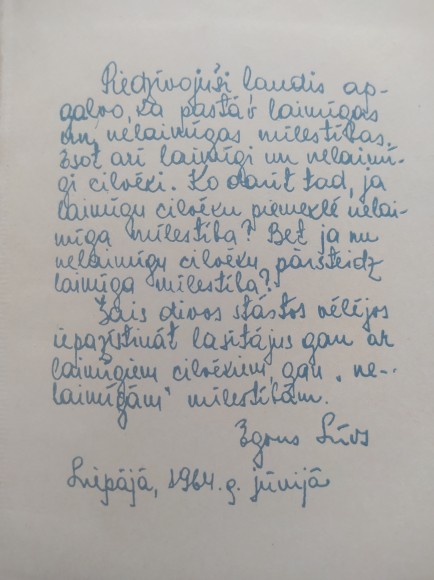 Piedzīvojuši ļaudis ap-
galvo, ka pastāv laimīgas
un nelaimīgas mīlestības.
Esot arī laimīgi un nelaimī-
gi cilvēki. Ko darīt tad, ja
laimīgu cilvēku piemeklē nelai-
mīga mīlestība? Bet ja nu
nelaimīgu cilvēku pārsteidz
laimīga mīlestība?
Šais divos stāstos vēlējos
iepazīstināt lasītājus gan ar
laimīgiem cilvēkiem, gan „ne-
laimīgām" mīlestībām.
Egons Līvs
Liepājā, 1964. g. jūnijā